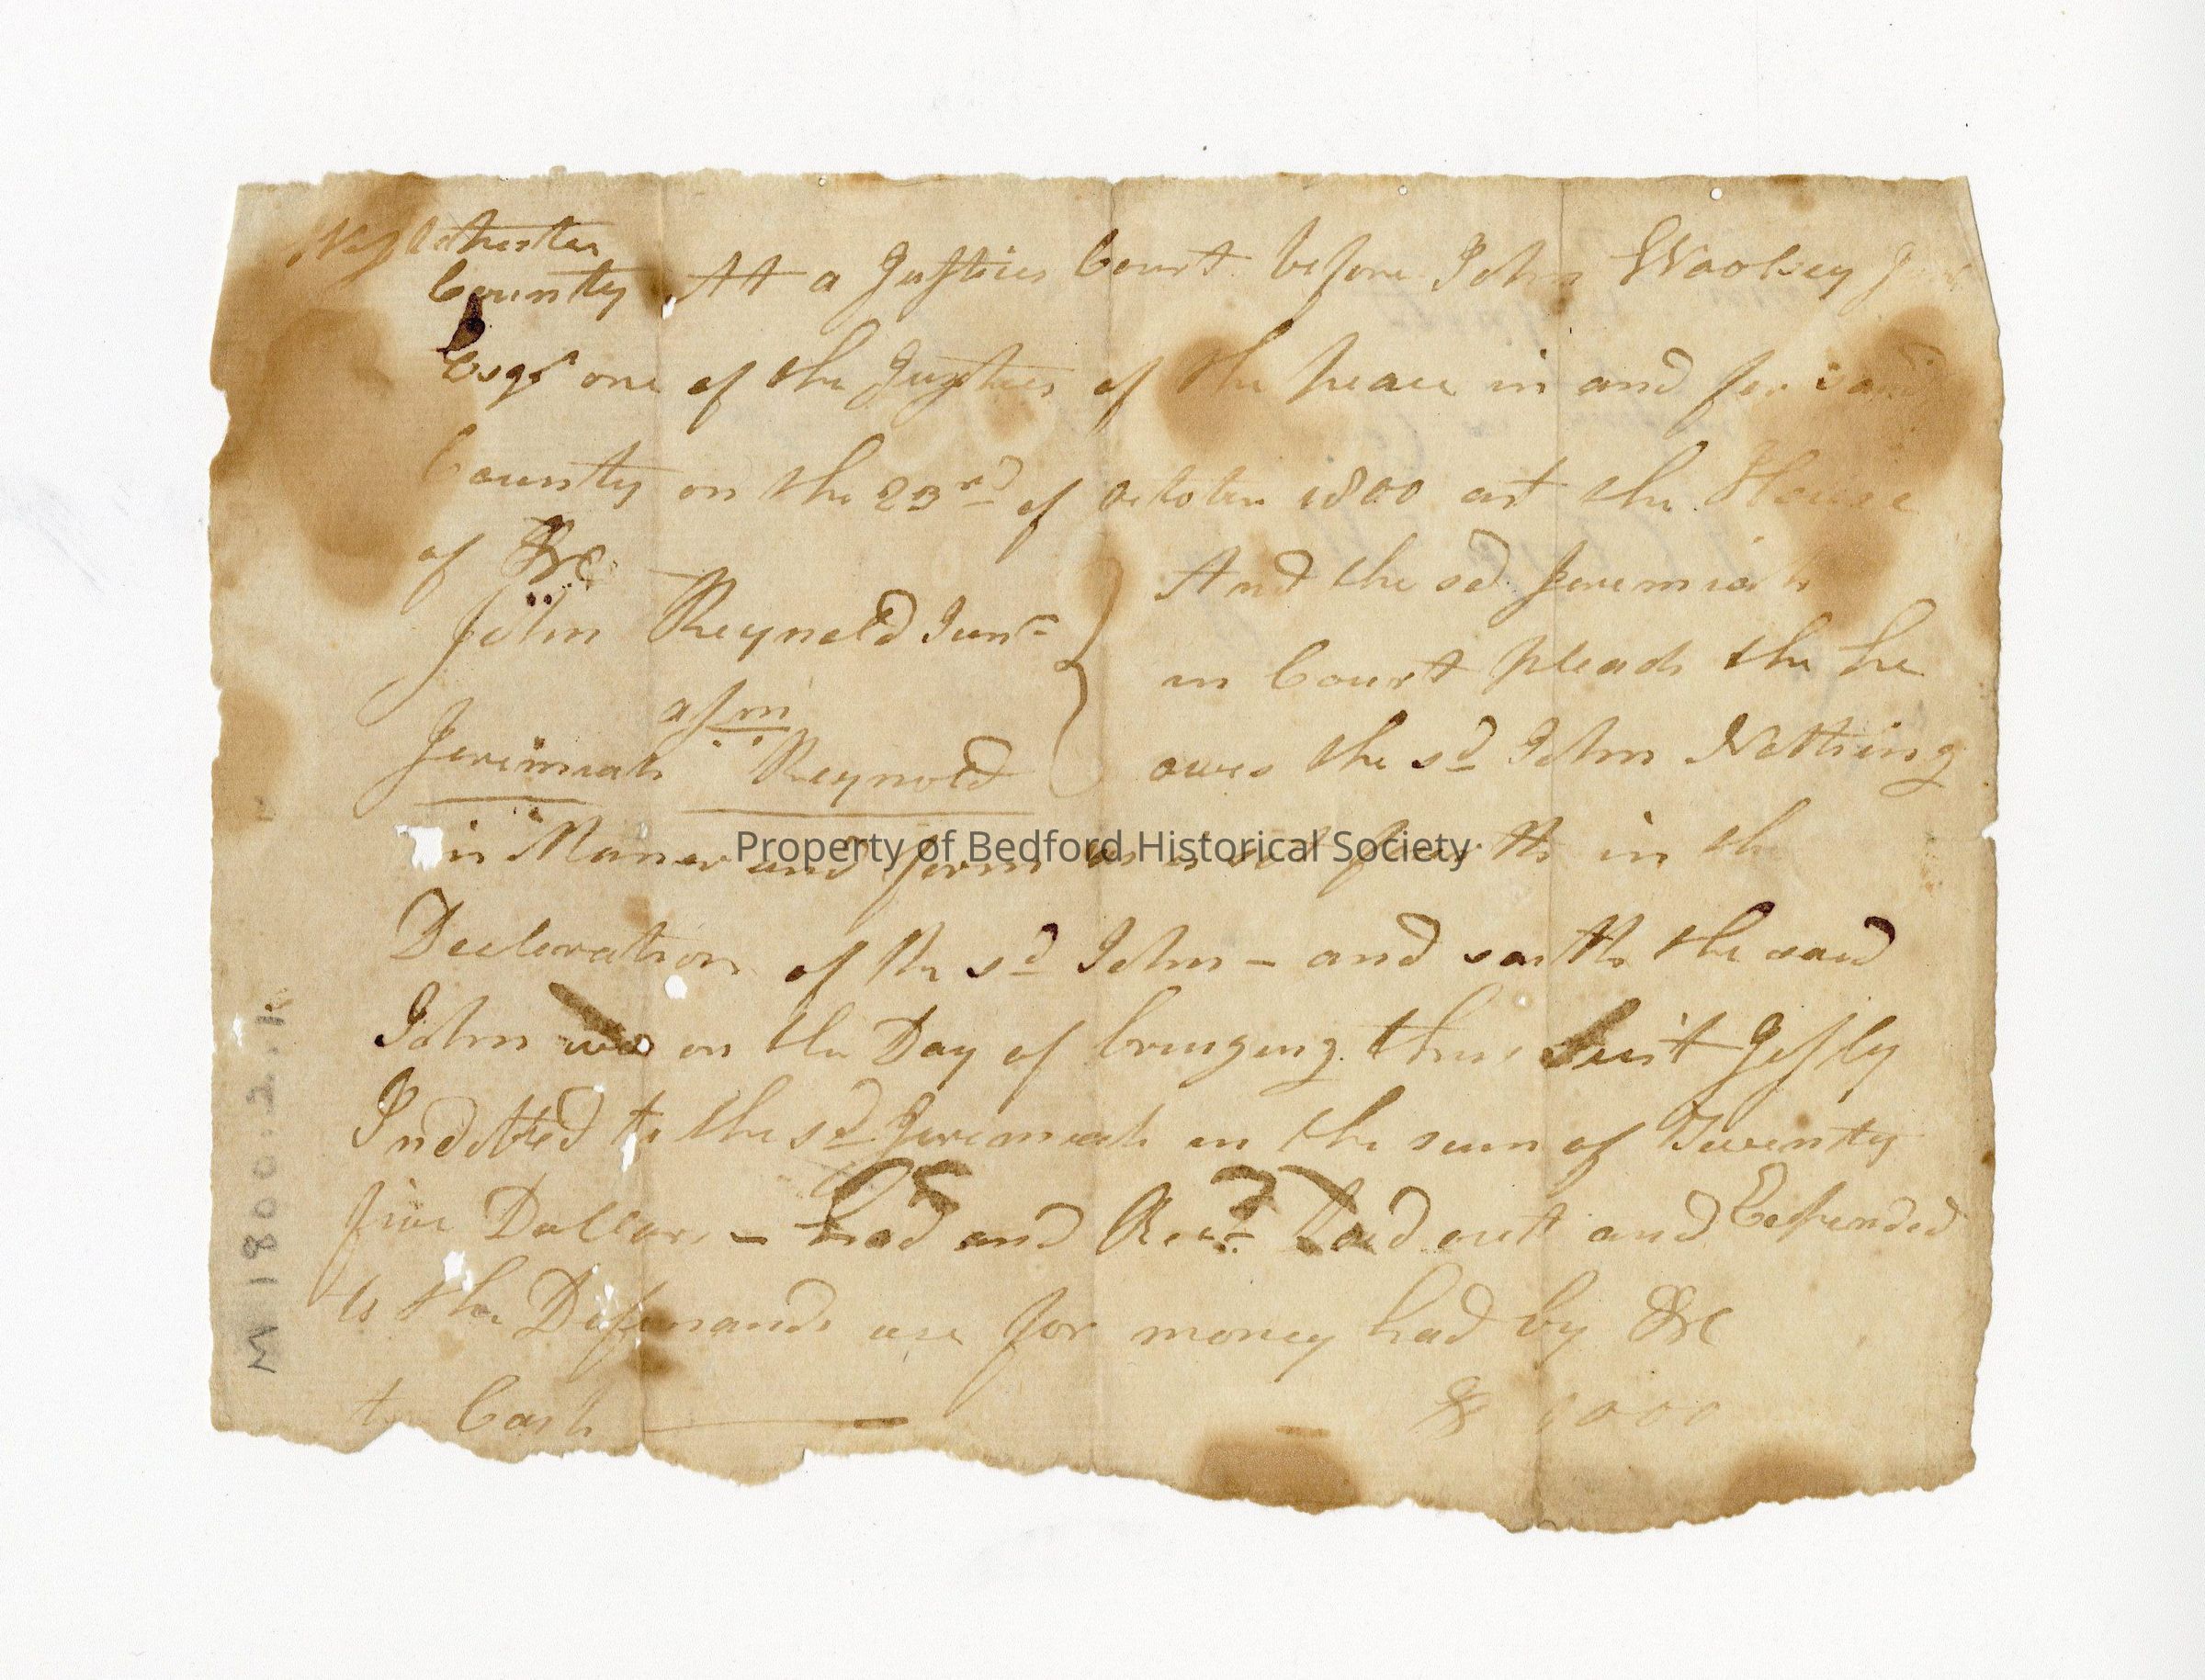 Westchester
County At a Justices Court before John Woolsey
Esqr one of the Justices of the peace in and for said
County on the 23rd of october 1800 at the House
of &c
John Reynold Junr
agsm
Jeremiah Reynold
And the sd Jeremiah
in Court pleads the he
owes the sd John Nothing
in Maner and form as is set forth in the
Decleration of the sd John - and saith the said
John was on the Day of bringing this Suit Jestly
Indebted to the sd Jeremiah in the sum of Twenty
five Dollars - had and Recd Laid out and Expended
to the Defenands use for money had by &c
to Cash
Property of Bedford Historical Society
M 1800.2.1